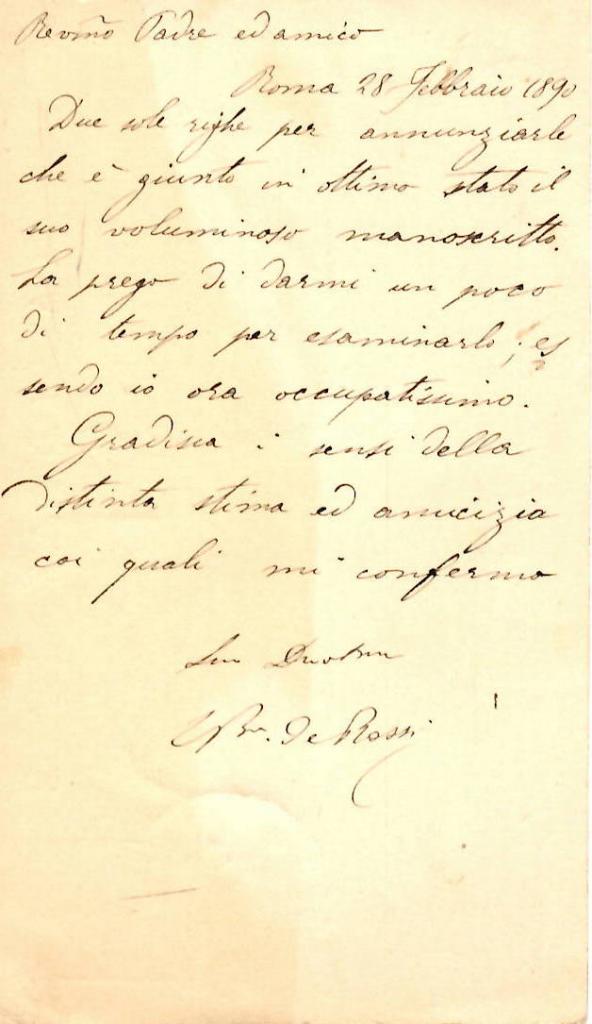 Revmo Padre ed amico
Roma 28 Febbraio 1890
Due sole righe per annunziarle
che è giunto in ottimo stato il
suo voluminoso manoscritto.
La prego di darmi un poco
di tempo per esaminarlo; es
sendo io ora occupatissimo.
Gradisca i sensi della
distinta stima ed amicizia
coi quali mi confermo
Suo Devotmo
GBa. De Rossi